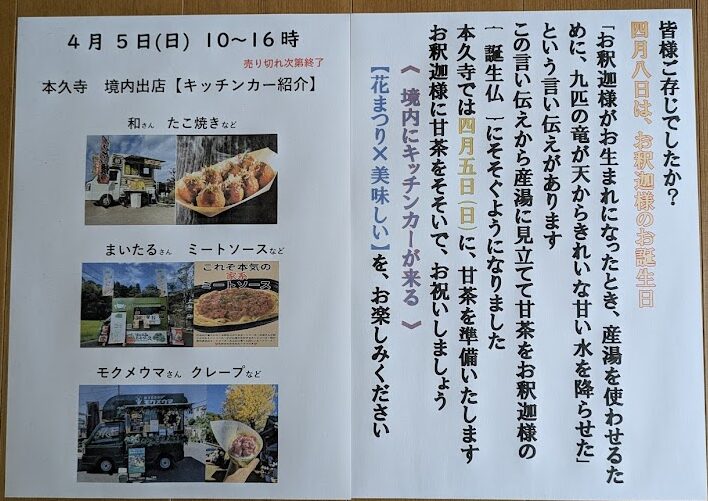 4月 5日(日) 10～16時
売り切れ次第終了
本久寺 境内出店【キッチンカー紹介】
和さん たこ焼きなど
まいたるさん ミートソースなど
これぞ本気の
家系
ミートソース
モクメウマさん クレープなど
モクメウマ
皆様ご存じでしたか?
四月八日は、お釈迦様のお誕生日
「お釈迦様がお生まれになったとき、産湯を使わせるた
めに、九匹の竜が天からきれいな甘い水を降らせた」
という言い伝えがあります
この言い伝えから産湯に見立てて甘茶をお釈迦様の
［誕生仏］にそそぐようになりました
本久寺では四月五日(日)に、甘茶を準備いたします
お釈迦様に甘茶をそそいで、お祝いしましょう
《 境内にキッチンカーが来る 》
【花まつり×美味しい】を、お楽しみください